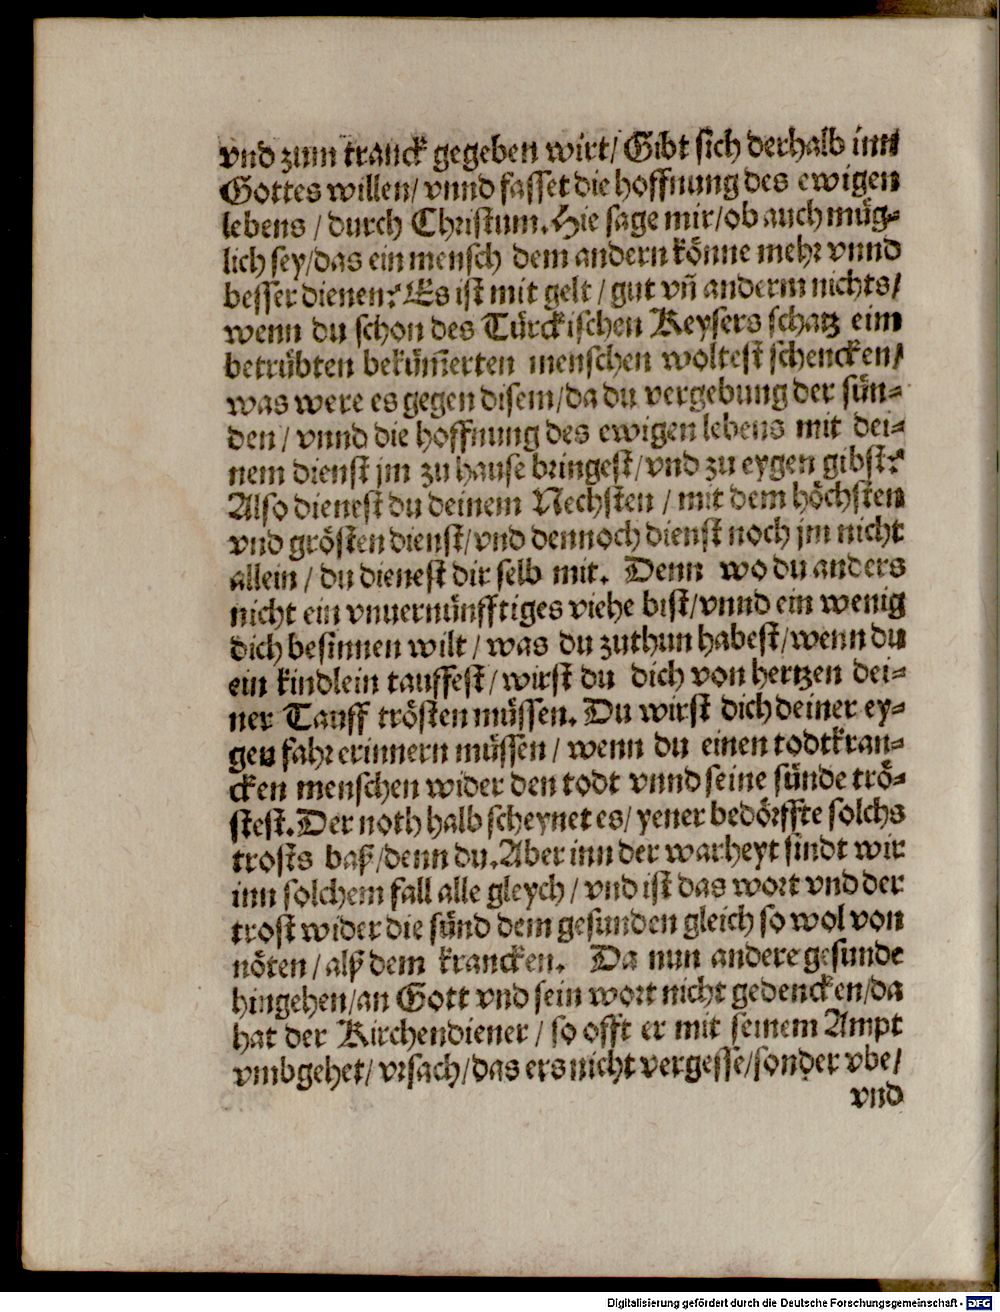 vnd zum tranck gegeben wirt/ Gibt sich derhalb inn
Gottes willen/ vnnd fasset die hoffnung des ewigen
lebens / durch Christum. Hie sage mir/ ob auch müg⸗
lich sey/ das ein mensch dem andern könne mehr vnnd
besser dienen? Es ist mit gelt / gut vñ anderm nichts/
wenn du schon des Türckischen Keysers schatz eim
betrübten bekümerten menschen woltest schencken/
was were es gegen disem/ da du vergebung der sün⸗
den / vnnd die hoffnung des ewigen lebens mit dei⸗
nem dienst jm zu hause bringest/ vnd zu eygen gibst?
Also dienest du deinem Nechsten / mit dem höchsten
vnd grösten dienst/ vnd dennoch dienst noch jm nicht
allein / du dienest dir selb mit. Denn wo du anders
nicht ein vnuernünfftiges viehe bist/ vnnd ein wenig
dich besinnen wilt / was du zuthun habest/ wenn du
ein kindlein tauffest / wirst du dich von hertzen dei⸗
ner Tauff trösten müssen. Du wirst dich deiner ey⸗
gen fahr erinnern müssen / wenn du einen todtkran⸗
cken menschen wider den todt vnnd seine sünde trö⸗
stest. Der noth halb scheynet es/ yener bedörffte solchs
trosts baß / denn du. Aber inn der warheyt sindt wir
inn solchem fall alle gleych / vnd ist das wort vnd der
trost wider die sünd dem gesunden gleich so wol von
nöten / alß dem krancken. Da nun andere gesunde
hingehen/ an Gott vnd sein wort nicht gedencken/ da
hat der Kirchendiener / so offt er mit seinem Ampt
vmbgehet/ vrsach/ das ers nicht vergesse/ sonder vbe/
vnd
Digitalisierung gefördert durch die Deutsche Forschungsgemeinschaft - DFG